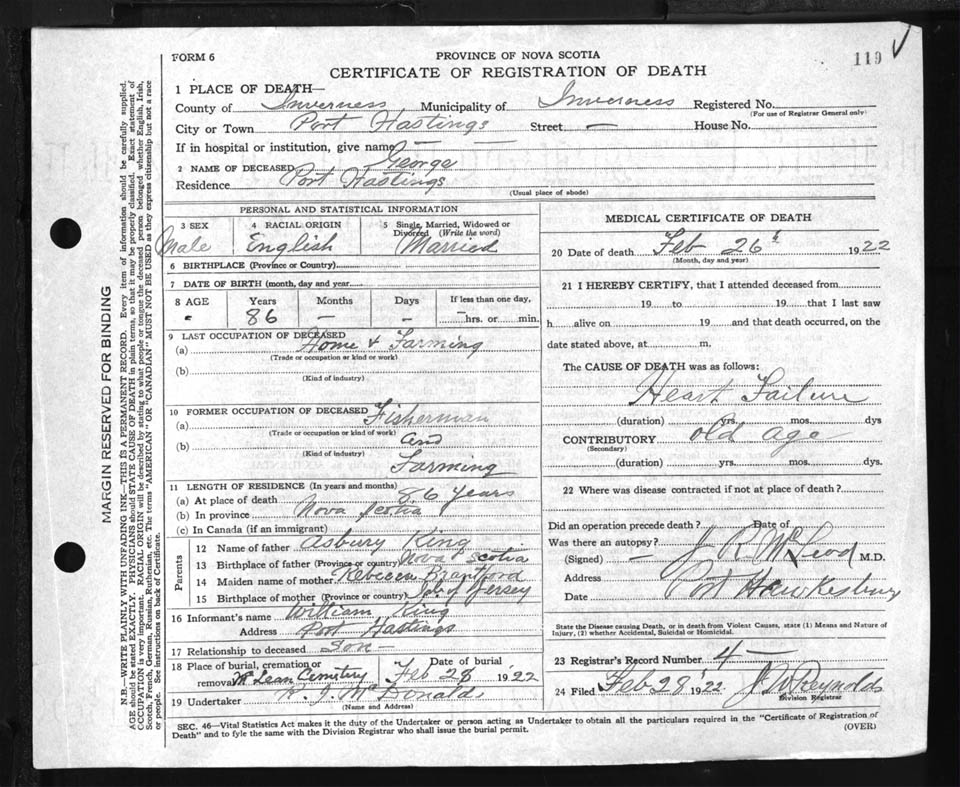 FORM 6
PROVINCE OF NOVA SCOTIA
119
CERTIFICATE OF REGISTRATION OF DEATH
1 PLACE OF DEATH—
County of Inverness Municipality of Inverness Registered No.
(For use of Registrar General only)
City or Town Port Hastings Street — House No.
If in hospital or institution, give name — —
2 NAME OF DECEASED George
Residence Port Hastings
(Usual place of abode)
PERSONAL AND STATISTICAL INFORMATION
3 SEX Male
4 RACIAL ORIGIN English
5 Single, Married, Widowed or Divorced (Write the word) Married
6 BIRTHPLACE (Province or Country)
7 DATE OF BIRTH (month, day and year)
8 AGE Years Months Days If less than one day,
86 — — — hrs. or min.
9 LAST OCCUPATION OF DECEASED
(a) Home & Farming
(Trade or occupation or kind of work)
(b)
(Kind of industry)
10 FORMER OCCUPATION OF DECEASED Fisherman
(a)
(Trade or occupation or kind of work) and
(b)
(Kind of industry) Farming
11 LENGTH OF RESIDENCE (In years and months)
(a) At place of death 86 years
(b) In province Nova Scotia
(c) In Canada (if an immigrant)
Parents
12 Name of father Asbury King
13 Birthplace of father (Province or country) Nova Scotia
14 Maiden name of mother Rebecca
15 Birthplace of mother (Province or country) Jersey
16 Informant's name William King
Address Port Hastings
17 Relationship to deceased Son —
18 Place of burial, cremation or removal McLean Cemetery Date of burial Feb 28 1922
19 Undertaker McDonald
(Name and Address)
MEDICAL CERTIFICATE OF DEATH
20 Date of death Feb 26 1922
(Month, day and year)
21 I HEREBY CERTIFY, that I attended deceased from
19 to 19 that I last saw
h alive on 19 and that death occurred, on the
date stated above, at m.
The CAUSE OF DEATH was as follows:
Heart Failure
(duration) yrs. mos. dys
CONTRIBUTORY old age
(Secondary)
(duration) yrs. mos. dys.
22 Where was disease contracted if not at place of death?
Did an operation precede death? Date of
Was there an autopsy?
(Signed) — J R McLeod M.D.
Address
Date Port Hawkesbury
State the Disease causing Death, or in death from Violent Causes, state (1) Means and Nature of
Injury, (2) whether Accidental, Suicidal or Homicidal.
23 Registrar's Record Number 4 —
24 Filed Feb 28 1922 Reynolds
Division Registrar
SEC. 46—Vital Statistics Act makes it the duty of the Undertaker or person acting as Undertaker to obtain all the particulars required in the "Certificate of Registration of
Death" and to fyle the same with the Division Registrar who shall issue the burial permit. (OVER)
MARGIN RESERVED FOR BINDING
N.B.—WRITE PLAINLY WITH UNFADING INK—THIS IS A PERMANENT RECORD. Every item of information should be carefully supplied.
AGE should be stated EXACTLY. PHYSICIANS should STATE CAUSE OF DEATH in plain terms, so that it may be properly classified. Exact statement of
OCCUPATION is very important. RACIAL ORIGIN will be described by stating to what people or tongue the deceased person belonged whether English, Irish,
Scotch, French, German, Russian, Ruthenian, etc. The terms "AMERICAN" or "CANADIAN" MUST NOT BE USED as they express citizenship but not a race
or people. See instructions on back of Certificate.